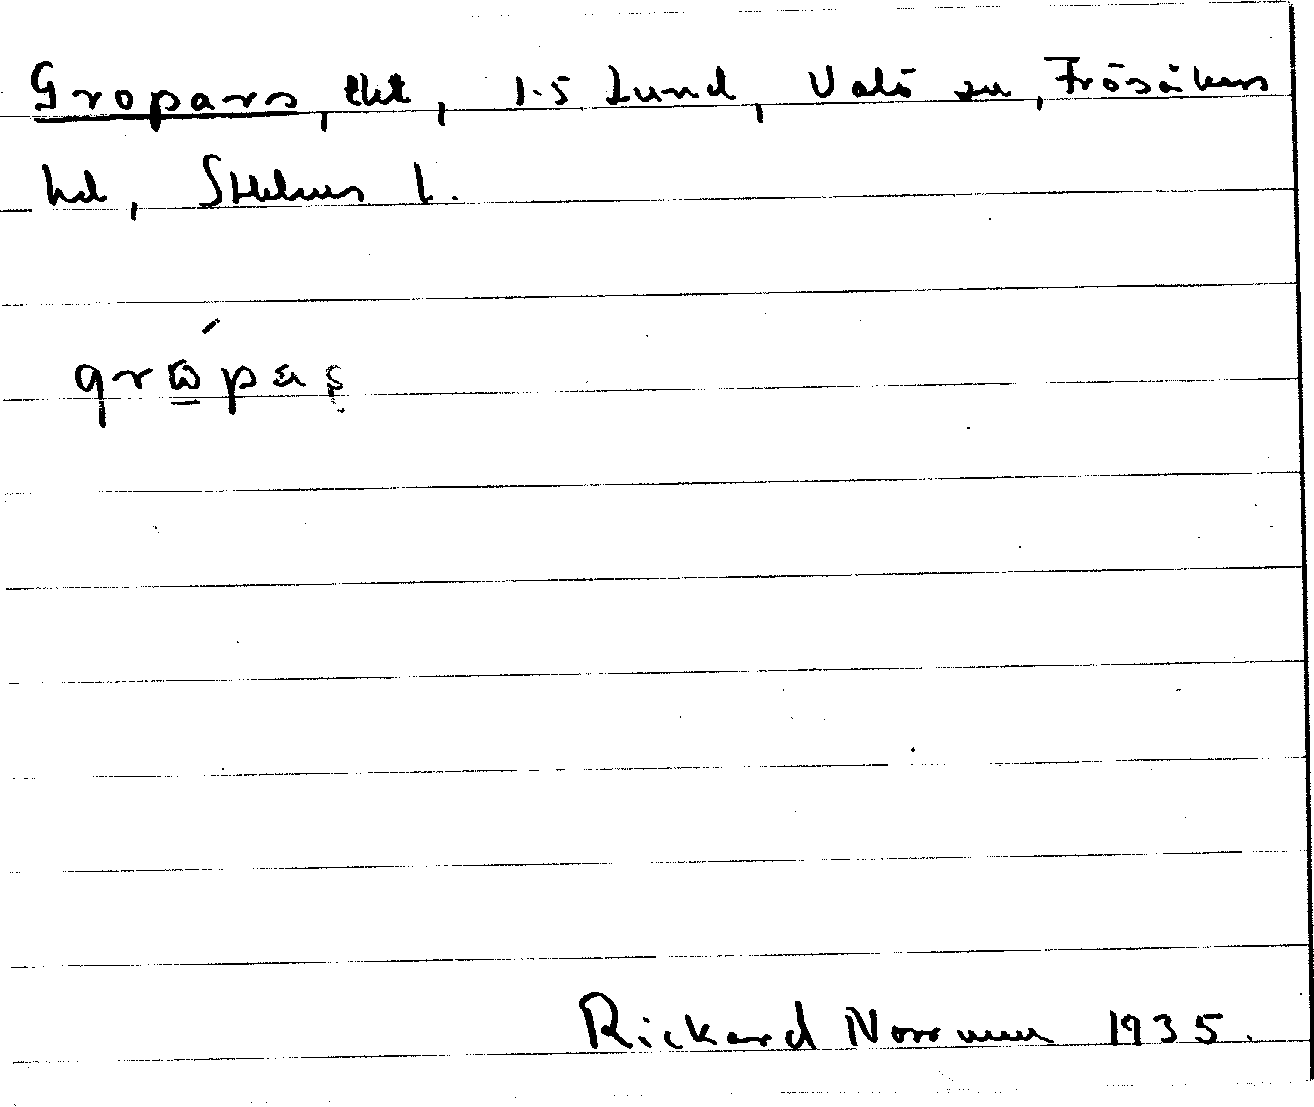 Gropars, tkt, 1.5 Lund, Valö sn, Frösåkers
hd, Sthlms l.
Rickard Norrman 1935.